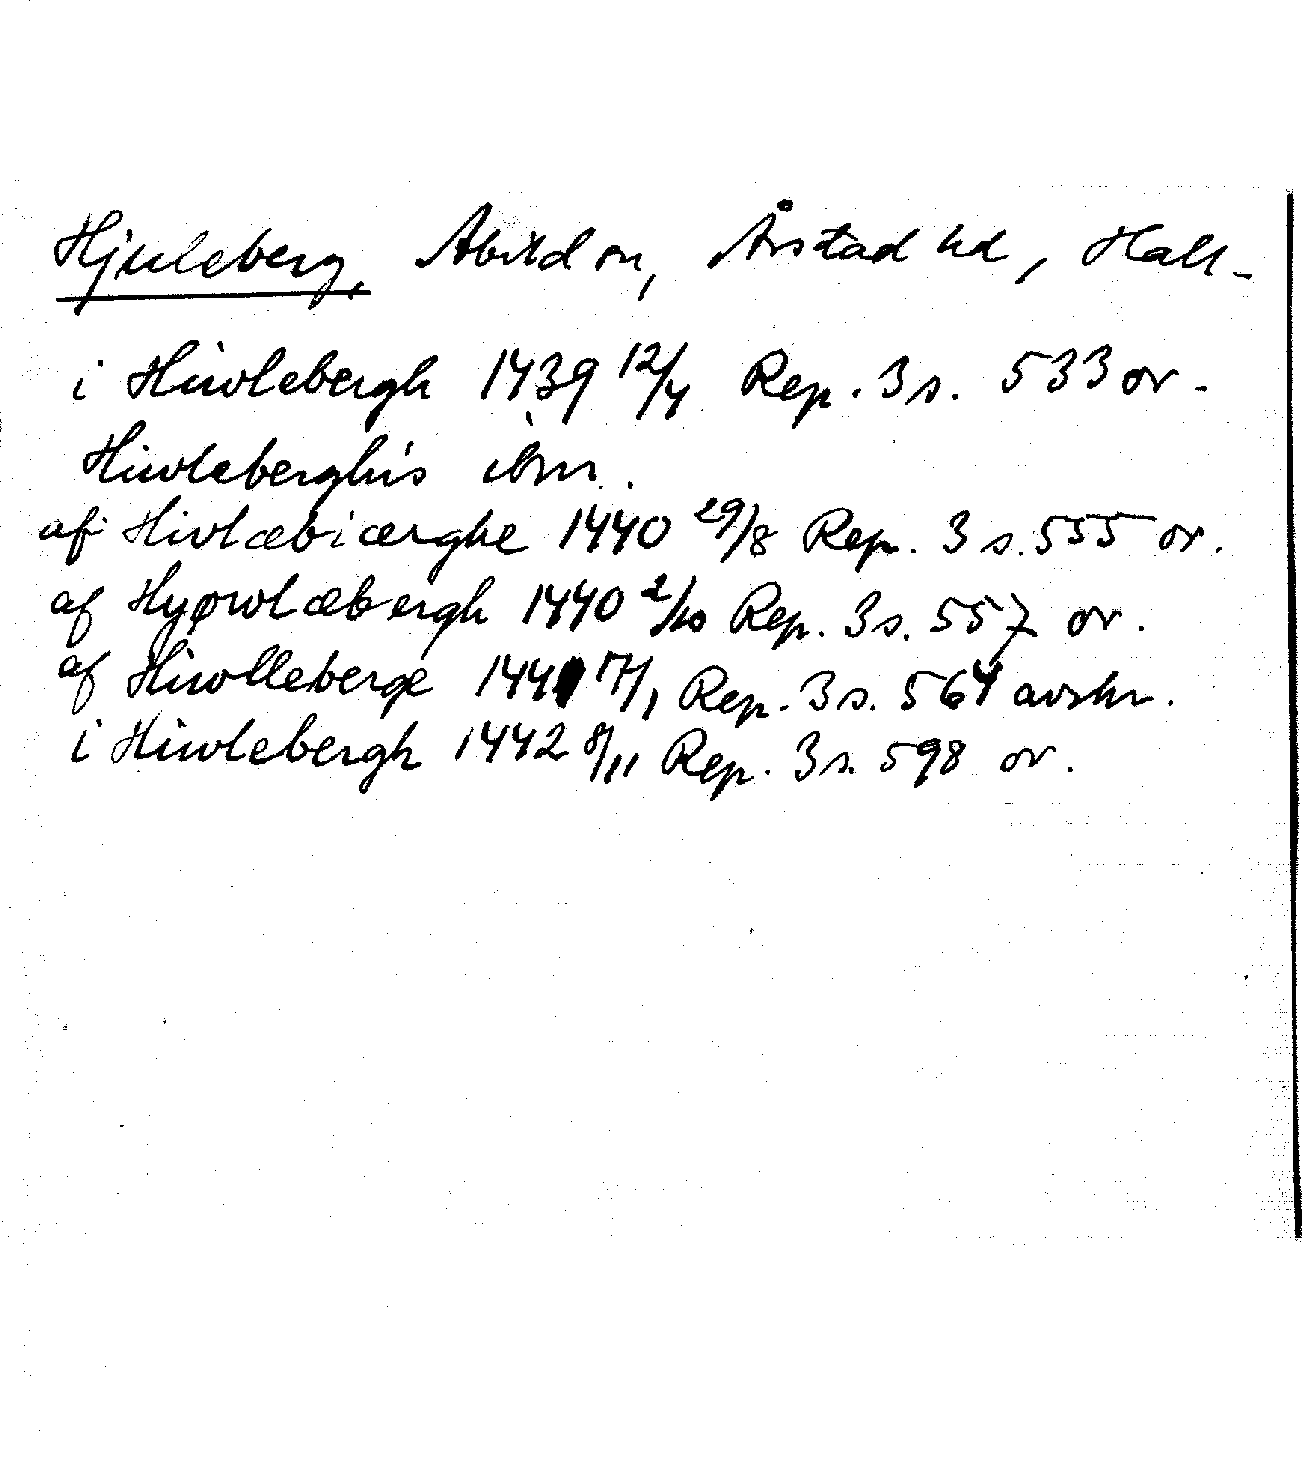 Hjuleberg, Abild sn, Årstad hd, Hall-
i Hiwlebergh 1439 12/4 Rep. 3 s. 533 or.
Hiwleberghis ibm.
af Hivlæbiærghe 1440 29/8 Rep. 3 s. 555 or.
af Hyørwlæbergh 1440 2/10 Rep. 3 s. 557 or.
af Hiwlleberge 1441 17/1 Rep. 3 s. 564 avskr.
i Hiwlebergh 1442 8/11 Rep. 3 s. 598 or.